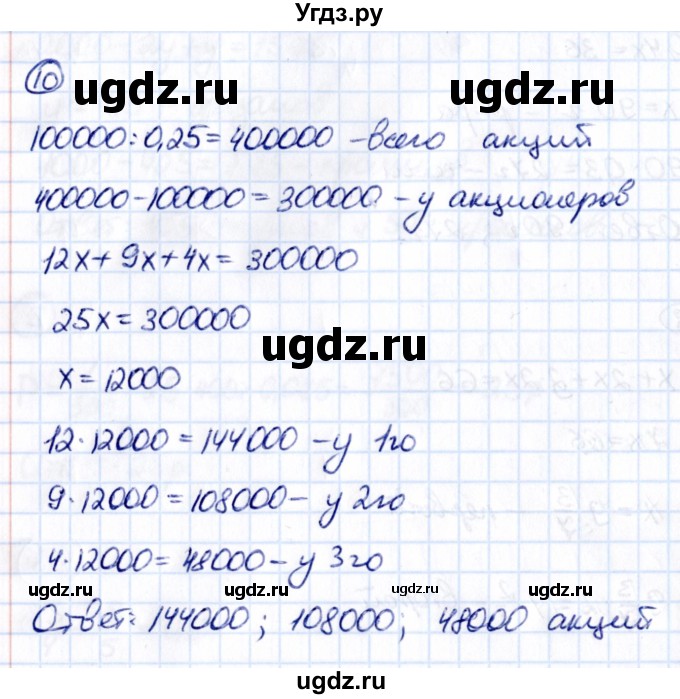 Угдз.ру
10
ugdz.ru ugdz.ru
100000:0,25=400000 -всего акций
400000-100000=300000 - у акционеров
12x+9x+4x=300000
25x=300000
ugdz.ru
x=12000
12·12000=144000 - у 1го
9·12000=108000 - у 2го
4·12000=48000 - у 3го
ugdz.ru ugdz.ru ugdz.ru ugdz.ru
Ответ: 144000; 108000; 48000 акций
ugdz.ru ugdz.ru